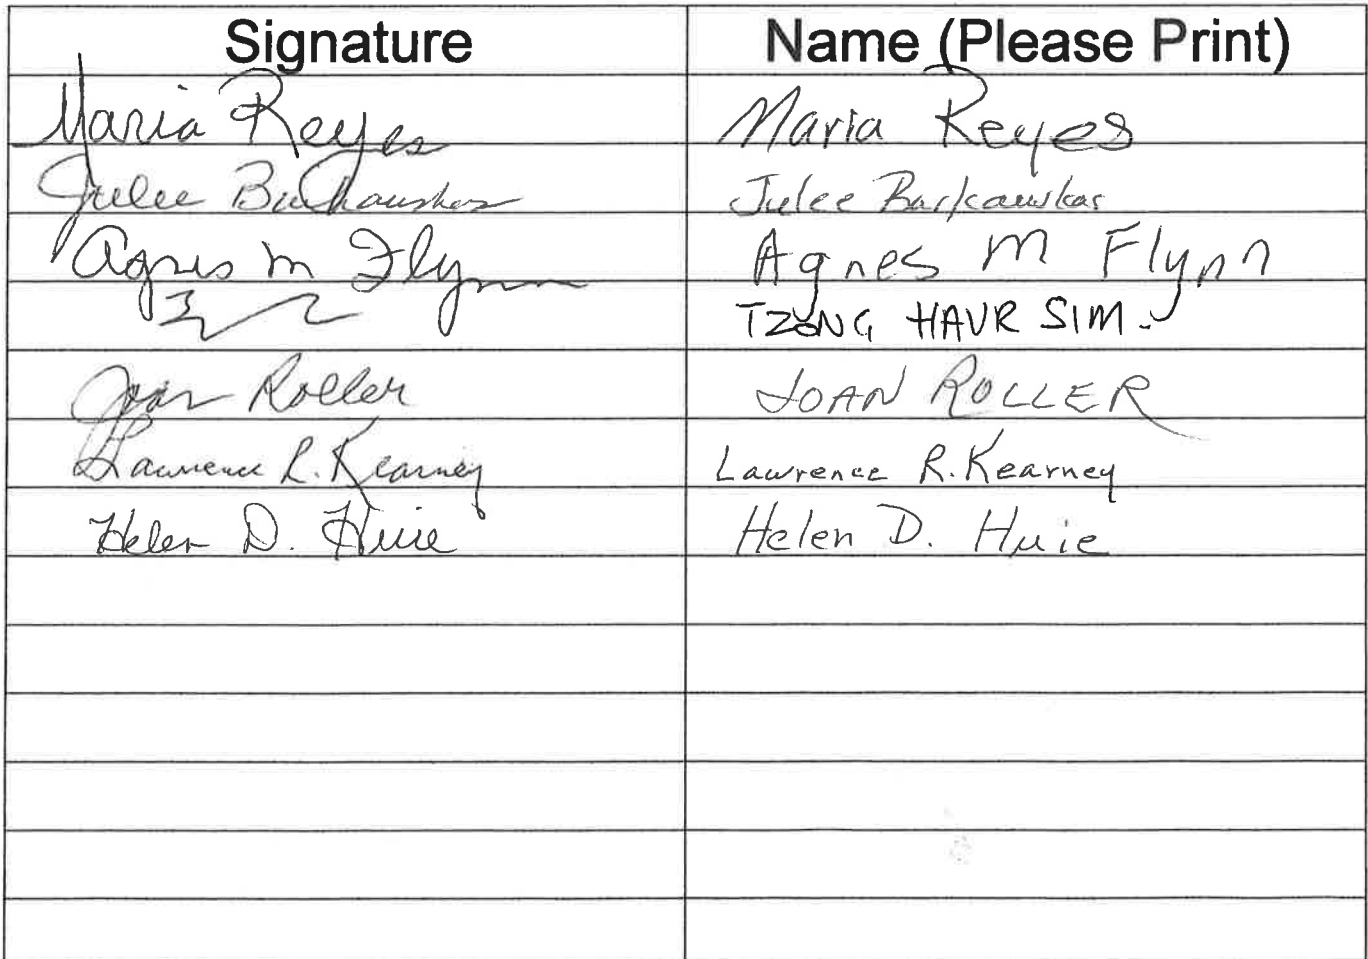 Signature Name (Please Print)
Maria Reyes Maria Reyes
Julee Julee
Agnes M Flynn Agnes M Flynn
TZONG HAUR SIM.
Joan Roller JOAN ROLLER
Lawrence R. Kearney Lawrence R. Kearney
Helen D. Huie Helen D. Huie